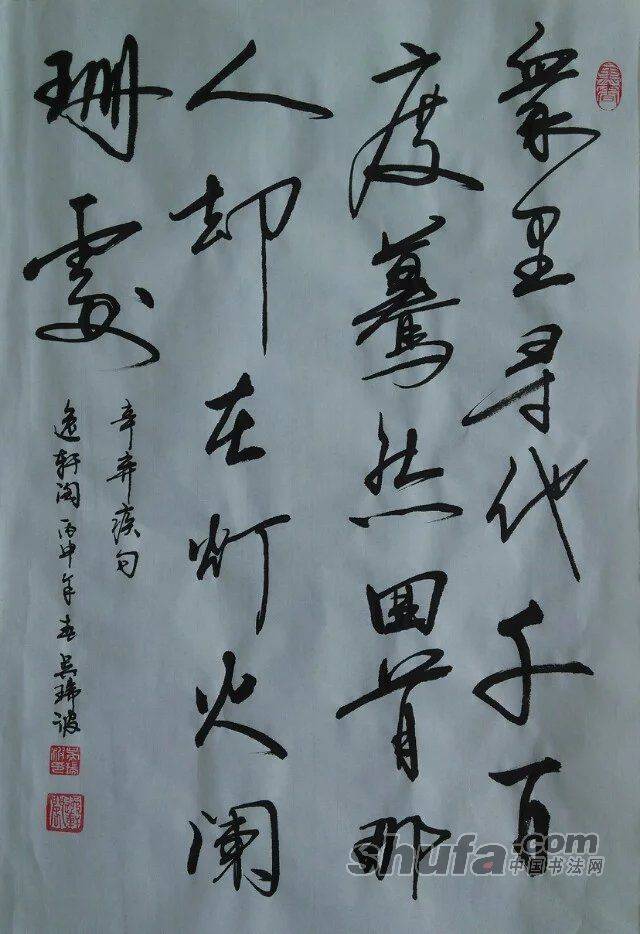 衆里寻他千百
度驀然回首那
人却在灯火阑
珊處
辛弃疾句
逸轩阁丙申年春吴瑞波
shufa.com
中国书法网